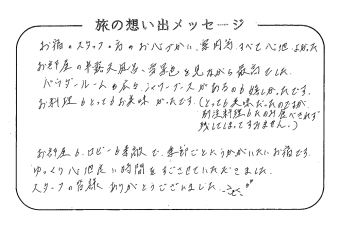 旅の想い出メッセージ
お宿のスタッフの方のお心づかい、雰囲気すべて心地よかった
お部屋の半露天風呂、雪景色を見ながら最高でした。
パウダールームも広々、シャワーブースがあるのも嬉しかったです。
お料理もとってもお美味かったです。(とっても美味だったのですが、
別注料理もたのみ食べきれず
残してしまってすみません。)
お部屋も、ロビーも素敵で、季節ごとにうかがいたいお宿です。
ゆっくり心地良い時間をすごさせていただきました。
スタッフの皆様ありがとうございました。